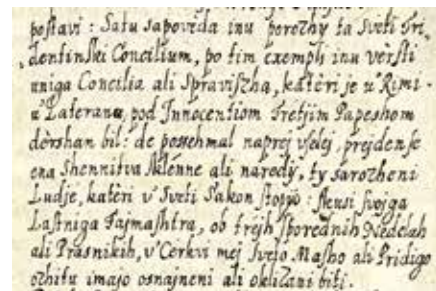 postavi : Satu sapovéda inu porozhy ta Sveti Tri„
„dentinski Concilium, po tim exempli inu vèrsti
uniga Concilia ali Spravisha, katèri je v' Rimi
v' Lateranu, pod Innocentiom Tretjim Papeshom
dèrshan bil: de posehmal naprej vselej, prejden se
ena Shennitva sklénne ali naredy, ty sarozheni
Ludje, katèri v' Sveti Sakon stopjo : skusi svojga
Lastniga Fajmashtra, ob tréjh sporednih Nedelah
ali Prasnikih, v' Cerkvi mej Sveto Masho ali Pridigo
ozhitu imajo osnajneni ali oklizani biti.